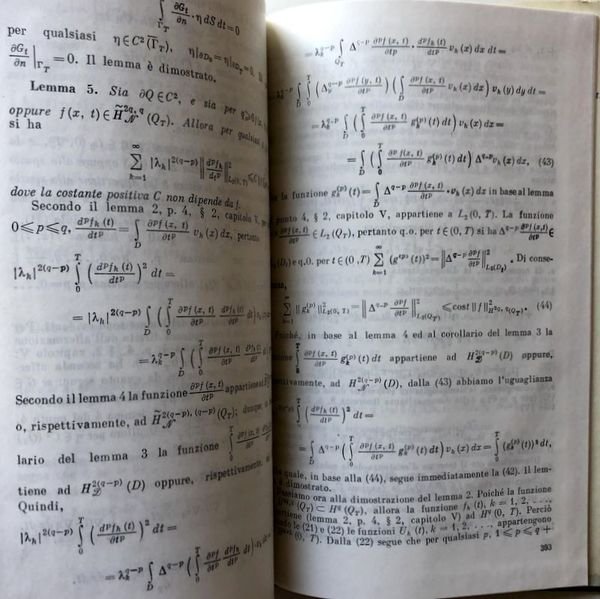 ∫_{Γ_T} ∂G_t/∂n · η dS dt = 0
per qualsiasi η ∈ C²(Γ̄_T), η|_{∂D_0} = η|
∂G_t/∂n |_{Γ_T} = 0. Il lemma è dimostrato.
Lemma 5. Sia ∂Q ∈ C², e sia per q
oppure f(x, t) ∈ H̃_𝒩^{2q, q}(Q_T). Allora per
si ha
∑_{k=1}^{∞} |λ_k|^{2(q−p)} ‖d^p f_k/dt^p‖²_{L_2(0, T)} ≤ C
dove la costante positiva C non dipende da f.
Secondo il lemma 2, p. 4, § 2, capitolo V, pe
0 ≤ p ≤ q, d^p f_k(t)/dt^p = ∫_D ∂^p f(x, t)/∂t^p v_k(x) dx, pertanto
|λ_k|^{2(q−p)} ∫_0^T (d^p f_k(t)/dt^p)² dt =
= |λ_k|^{2(q−p)} ∫_D (∫_0^T ∂^p f(x, t)/∂t^p d^p f_k/dt^p dt)
= λ_k^{q−p} ∫_D (∫_0^T ∂^p f(x, t)/∂t^p
Secondo il lemma 4 la funzione ∂^p f(x, t)/∂t^p appartiene ad
o, rispettivamente, ad H̃_𝒩^{2(q−p), (q−p)}(Q_T);
lario del lemma 3 la funzione ∫_0^T ∂^p f(x, t)/∂t^p
tiene ad H_𝒟^{2(q−p)}(D) oppure, rispettivamente,
Quindi,
|λ_k|^{2(q−p)} ∫_0^T (d^p f_k/dt^p)² dt =
= λ_k^{q−p} ∫_D Δ^{q−p} (∫_0^T ∂^p f/∂t^p d^p f_k/dt^p dt)
= λ_k^{q−p} ∫_{Q_T} Δ^{q−p} ∂^p f(x, t)/∂t^p · d^p f_k(t)/dt^p v_k(x) dx dt =
∫_D ∫_0^T (Δ_y^{q−p} ∂^p f(y, t)/∂t^p) (∫_D ∂^p f(x, t)/∂t^p v_k(x) dx) v_k(y) dy dt =
= λ_k^{q−p} ∫_D (∫_0^T ∂^p f(x, t)/∂t^p g_k^{(p)}(t) dt) v_k(x) dx =
= ∫_D (∫_0^T ∂^p f(x, t)/∂t^p g_k^{(p)}(t) dt) Δ^{q−p} v_k(x) dx, (43)
la funzione g_k^{(p)}(t) = ∫_D Δ^{q−p} ∂^p f(x, t)/∂t^p · v_k(x) dx in base al lemma
punto 4, § 2, capitolo V, appartiene a L_2(0, T). La funzione
∂^p f(x, t)/∂t^p ∈ L_2(Q_T), pertanto q.o. per t ∈ (0, T) si ha Δ^{q−p} ∂^p f(x, t)/∂t^p ∈
(D_t) e q.o. per t ∈ (0, T) ∑_{k=1}^{∞} (g_k^{(p)}(t))² = ‖Δ^{q−p} ∂^p f/∂t^p‖²_{L_2(D_t)}. Di conse-
∑_{k=1}^{∞} ‖g_k^{(p)}‖²_{L_2(0, T)} = ‖Δ^{q−p} ∂^p f/∂t^p‖²_{L_2(Q_T)} ≤ cost ‖f‖²_{H^{2q, q}(Q_T)}. (44)
Poiché, in base al lemma 4 ed al corollario del lemma 3 la
∫_0^T ∂^p f(x, t)/∂t^p g_k^{(p)}(t) dt appartiene ad H_𝒟^{2(q−p)}(D) oppure,
ettivamente, ad H_𝒩^{2(q−p)}(D), dalla (43) abbiamo l'uguaglianza
∫_0^T (d^p f_k(t)/dt^p)² dt =
= ∫_D Δ^{q−p} (∫_0^T ∂^p f(x, t)/∂t^p g_k^{(p)}(t) dt) v_k(x) dx = ∫_0^T (g_k^{(p)}(t))² dt,
quale, in base alla (44), segue immediatamente la (42). Il lem-
dimostrato.
ssiamo ora alla dimostrazione del lemma 2. Poiché la funzione
(Q_T) ⊂ H^q(Q_T), allora la funzione f_k(t), k = 1, 2, . . .,
artiene (lemma 2, p. 4, § 2, capitolo V) ad H^q(0, T). Perciò
ndo le (21) e (22) le funzioni U_k(t), k = 1, 2, . . ., appartengono
(0, T). Dalla (22) segue che per qualsiasi p, 1 ≤ p ≤ q +
393